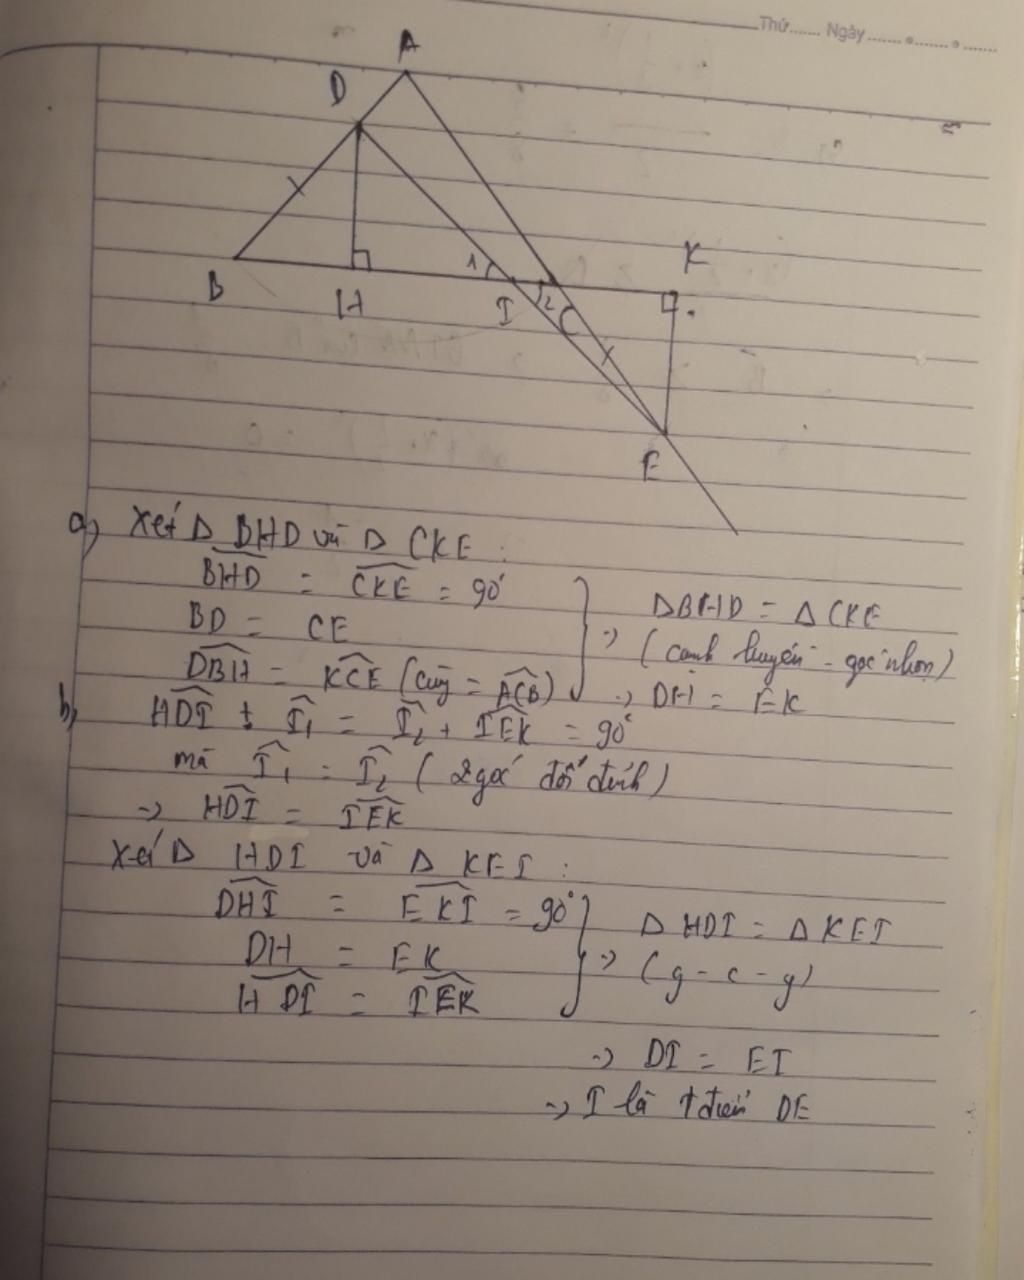 Thứ...... Ngày.......................
A
D
B
H
1
I
2
C
K
E
a, Xét Δ BHD và Δ CKE :
BHD = CKE = 90°
BD = CE
DBH = KCE (cùng = ACB)
=> ΔBHD = ΔCKE
(cạnh huyền - góc nhọn)
=> DH = EK
b, HDI + I1 = I2 + IEK = 90°
mà I1 = I2 ( 2 góc đối đỉnh )
=> HDI = IEK
Xét Δ HDI và Δ KEI :
DHI = EKI = 90°
DH = EK
HDI = IEK
=> Δ HDI = Δ KEI
( g - c - g )
=> DI = EI
=> I là tđiểm DE